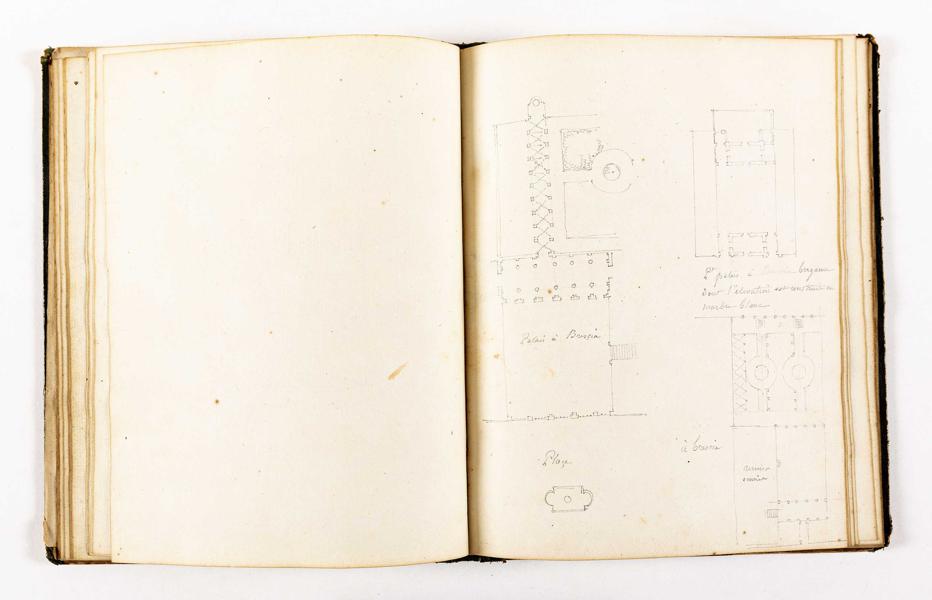 Palais à Brescia
Place
Pt palais à bergame
dont l'élévation est construite en
marbre blanc
à brescia